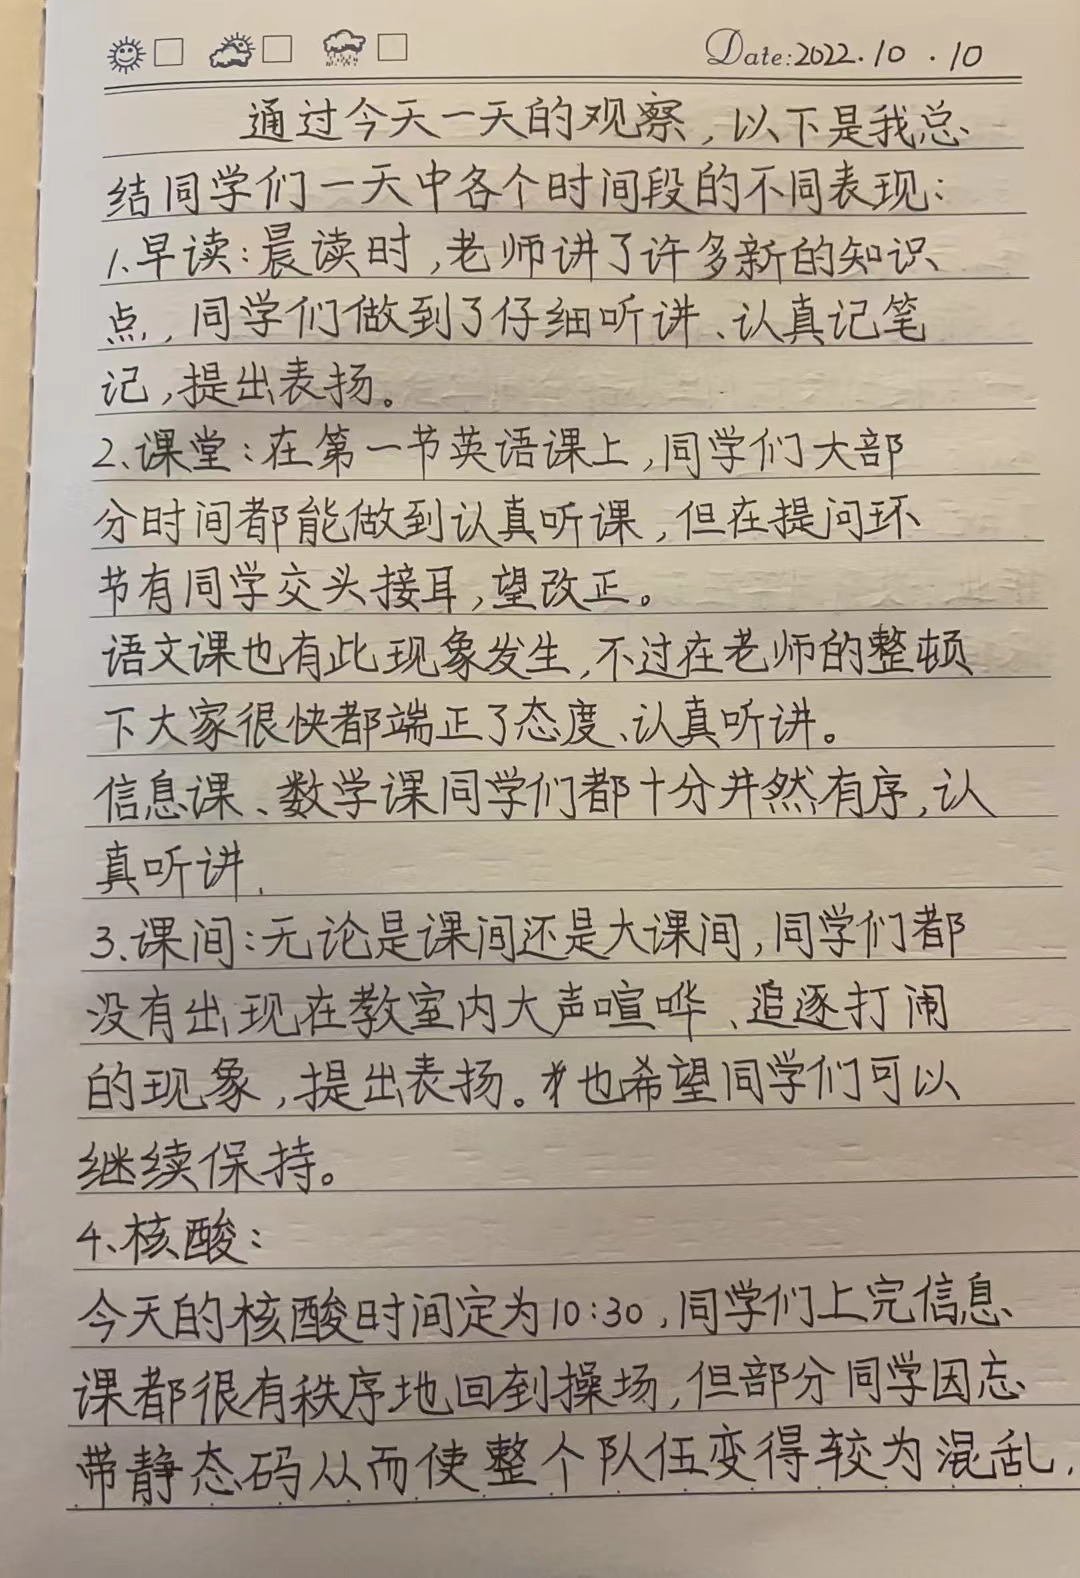 Date: 2022.10.10
通过今天一天的观察,以下是我总
结同学们一天中各个时间段的不同表现:
1、早读:晨读时,老师讲了许多新的知识
点,同学们做到了仔细听讲、认真记笔
记,提出表扬。
2、课堂:在第一节英语课上,同学们大部
分时间都能做到认真听课,但在提问环
节有同学交头接耳,望改正。
语文课也有此现象发生,不过在老师的整顿
下大家很快都端正了态度、认真听讲。
信息课、数学课同学们都十分井然有序,认
真听讲.
3、课间:无论是课间还是大课间,同学们都
没有出现在教室内大声喧哗、追逐打闹
的现象,提出表扬。也希望同学们可以
继续保持。
4、核酸:
今天的核酸时间定为10:30,同学们上完信息
课都很有秩序地回到操场,但部分同学因忘
带静态码从而使整个队伍变得较为混乱,